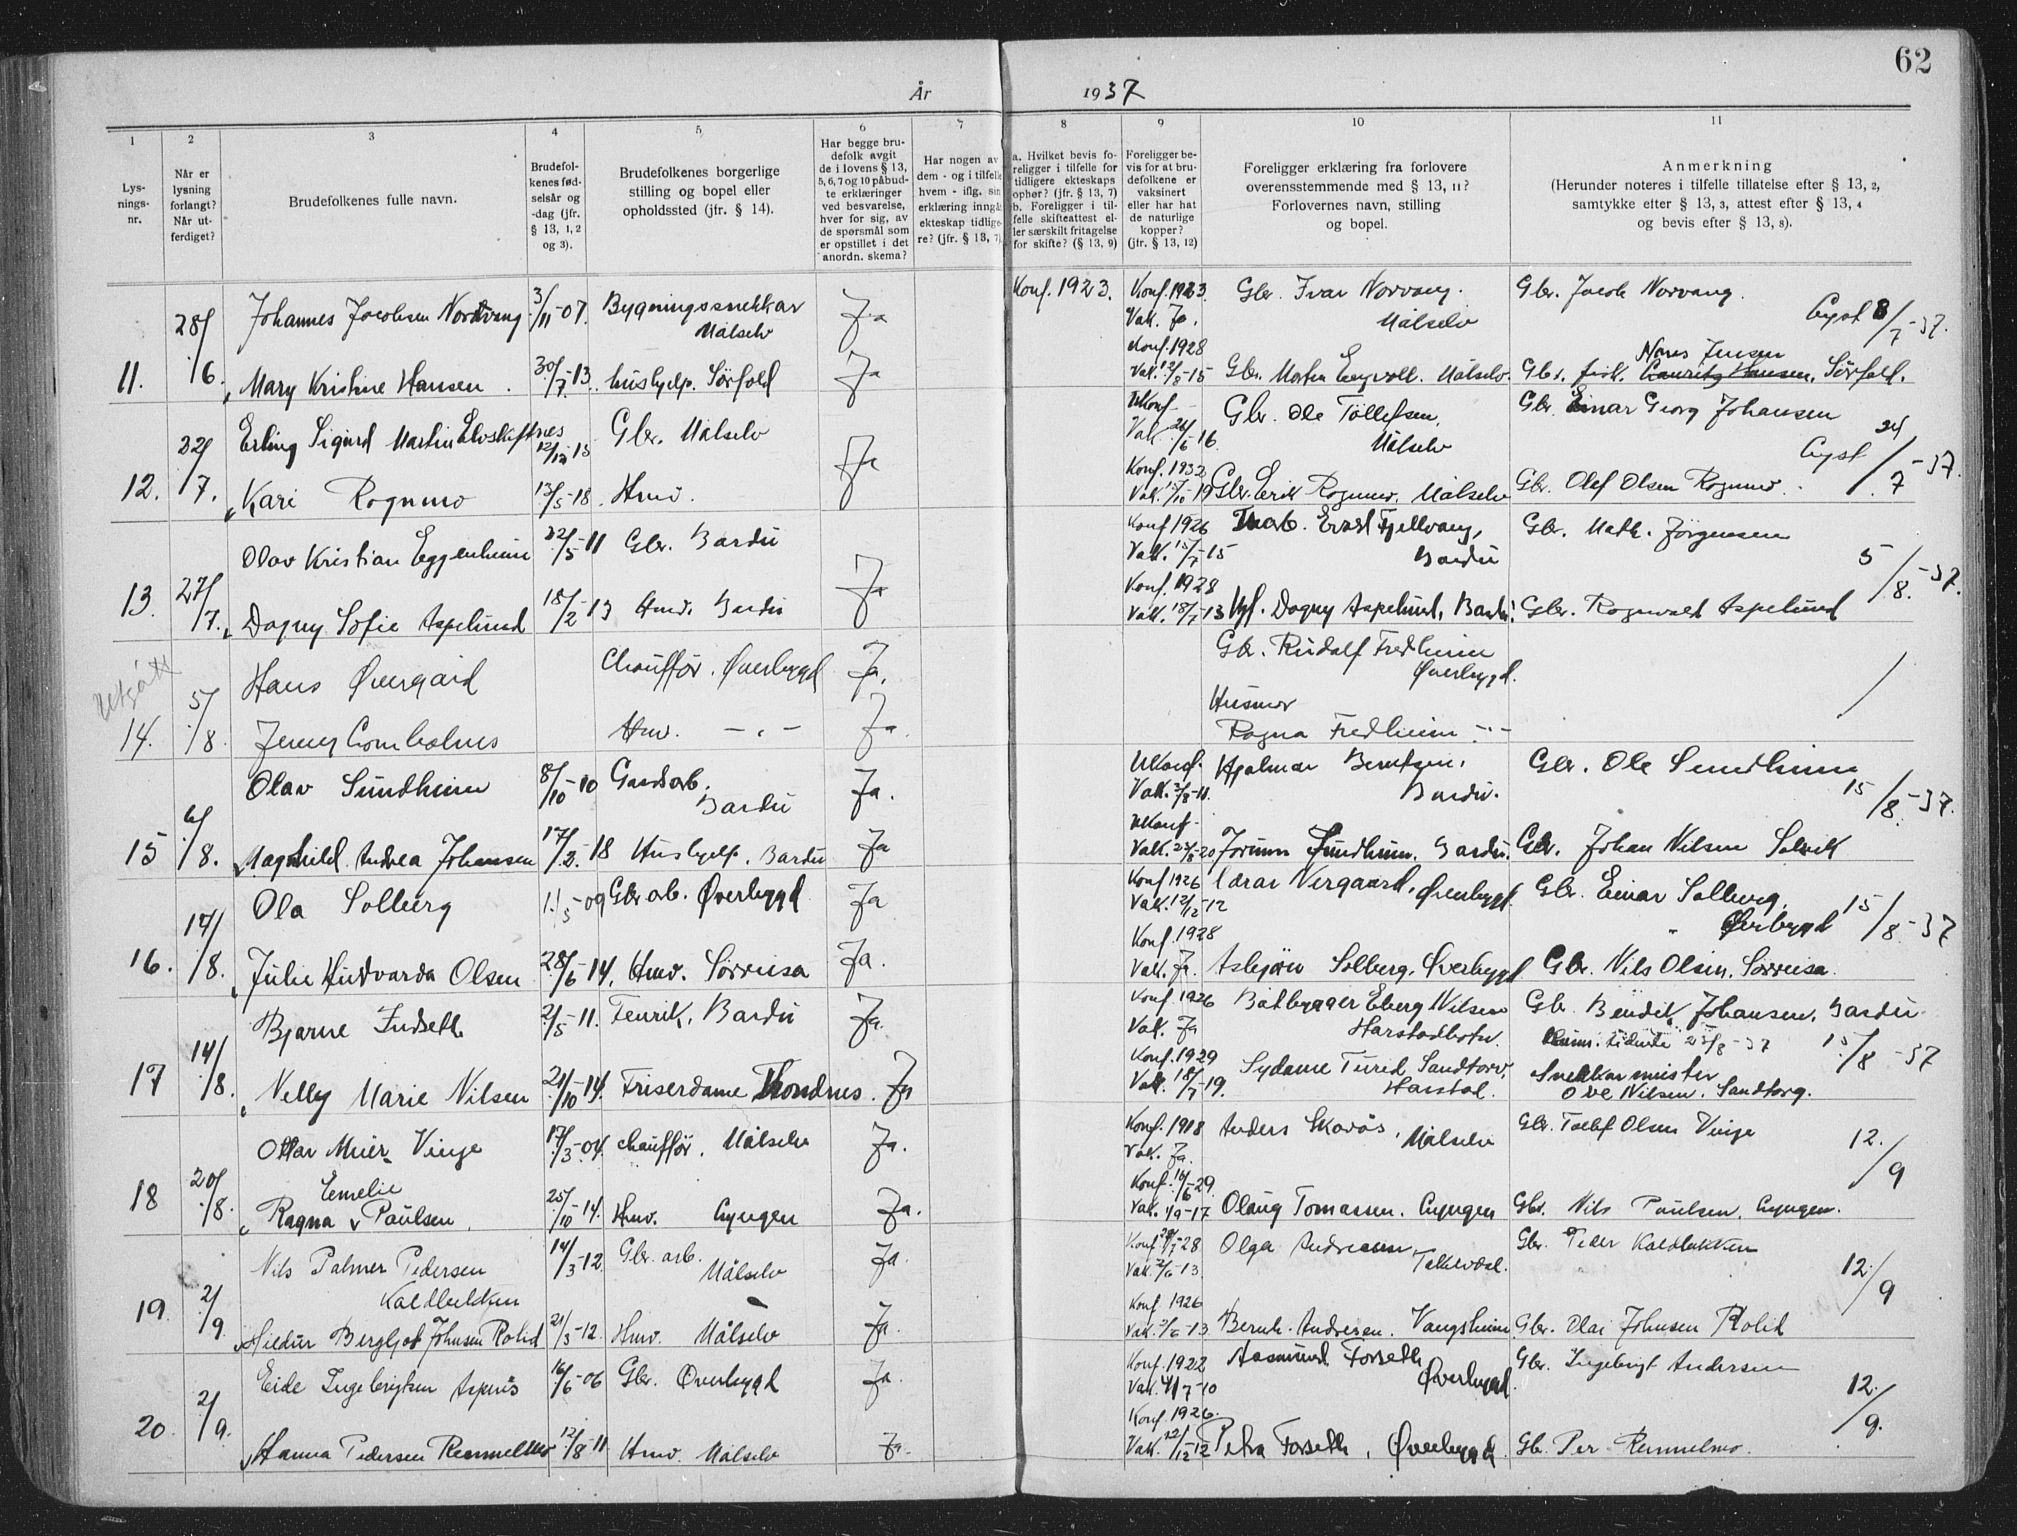 62
År 1937
1 2 3 4 5 6 7 8 9 10 11
Lys-
nings-
nr.
Når er
lysning
forlangt?
Når ut-
ferdiget?
Brudefolkenes fulle navn.
Brudefol-
kenes fød-
selsår og
-dag (jfr.
§ 13, 1, 2
og 3).
Brudefolkenes borgerlige
stilling og bopel eller
opholdssted (jfr. § 14).
Har begge bru-
defolk avgit
de i lovens § 13,
5, 6, 7 og 10 påbud-
te erklæringer
ved besvarelse,
hver for sig, av
de spørsmål som
er opstillet i det
anordn. skema?
Har nogen av
dem - og i tilfelle
hvem - iflg. sin
erklæring inngåt
ekteskap tidlige-
re? (jfr. § 13, 7)
a. Hvilket bevis fo-
religger i tilfelle for
tidligere ekteskaps
ophør? (jfr. § 13, 7)
b. Foreligger i til-
felle skifteattest el-
ler særskilt fritagelse
for skifte? (§ 13, 9)
Foreligger be-
vis for at bru-
defolkene er
vaksinert
eller har hat
de naturlige
kopper?
(jfr. § 13, 12)
Foreligger erklæring fra forlovere
overensstemmende med § 13, 11?
Forlovernes navn, stilling
og bopel.
Anmerkning
(Herunder noteres i tilfelle tillatelse efter § 13, 2,
samtykke efter § 13, 3, attest efter § 13, 4
og bevis efter § 13, 8).
11. 28/6. Johannes Jacobsen Nordvang 3/11-07. Bygningssnekkar Målselv Ja Konf. 1923. Konf. 1923. Vak. Ja. Gbr. Ivar Norvang. Målselv Gbr. Jacob Norvang. Lyst 8/7-37.
Mary Kristine Hansen. 30/7-13. hushjelp. Sørfold Ja Konf. 1928 Vak. 12/8-15 Gbr. Morten Engvoll. Målselv. Gbr. fisk. Jensen Sørfold.
12. 22/7. Erling Sigurd Martin Elvskiftnes 12/12-15 Gbr. Målselv Ja UKonf Vak. 26/6-16 Gbr. Ole Tollefsen, Målselv Gbr. Einar Georg Johansen Lyst 24/7-37.
Kari Rognmo 13/5-18. Hmv. Konf. 1932 Vak. 15/10-19 Gbr. Erik Rognmo, Målselv Gbr. Olef Olsen Rognmo.
13. 27/7. Olav Kristian Eggenheim 22/5-11 Gbr. Bardu Ja Konf 1926 Vak. 15/7-15 Ernst Fjellvang, Bardu Gbr. Math. Jørgensen 5/8.-37.
Dagny Sofie Aspelund 18/2-13 Hmv. Bardu Konf. 1928 Vak. 18/7-13 Dagny Aspelund, Bardu. Gbr. Rognvald Aspelund
Utgått
14. 5/8. Hans Øvergård Chauffør. Øverbygd Ja. Gbr. Rudolf Fredheim Øverbygd.
Jenny Hmv. -"- Ja. Husmor Ragna Fredheim -"-
15 6/8. Olav Sundheim 8/10-10 Gardsarb. Bardu Ja. UKonf. Vak. 3/8-11. Hjalmar Berntsen, Bardu. Gbr. Ole Sundheim 15/8.-37.
Magnhild Andrea Johansen 17/2.-18 Hushjelp. Bardu Ja UKonf. Vak. 23/8-20 Jorunn Sundheim. Bardu. Gbr. Johan Nilsen Solvik
16. 14/8. Ola Solberg 1/5-09 Gbr. arb. Øverbygd Ja Konf. 1926 Vak. 12/12-12 Nergaard, Øverbygd Gbr. Einar Solberg, Øverbygd 15/8.-37
Julie Hudvarda Olsen 28/6-14. Hmv. Sørreisa Ja. Konf. 1928 Vak. Ja. Asbjørn Solberg, Øverbygd Gbr. Nils Olsen, Sørreisa.
17 14/8. Bjarne Indseth 2/5-11. Fenrik, Bardu Ja. Konf. 1926 Vak. Ja Båtbygger Eberg Nilsen Harstadbotn. Gbr. Bendik Johansen, Bardu 15/8-37
Nelly Marie Nilsen 21/10-14. Friserdame Trondnes. Ja Konf. 1929 Vak. 18/7-19. Sydame Turid Sandtorv, Harstad. Snekkarmeister Ove Nilsen. Sandtorg.
18 20/8. Ottar Meier Vinje 17/3-04. chauffør, Målselv Ja. Konf. 1918 Vak. Ja. Anders Skavås, Målselv Gbr. Tollef Olsen Vinje 12./9
Ragna Emelie Paulsen. 25/10-14. Hmv. Lyngen Ja. Konf. 16/6-29. Vak. 1/9-17 Olaug Tomassen. Lyngen Gbr. Nils Paulsen, Lyngen.
19. 2/9. Nils Palmer Pedersen Kaldbekken 14/3-12. Gbr. arb. Målselv Ja. Konf 29/7-28 Vak. 2/6-13. Olga Andresen Takelvdal. Gbr. Peder Kaldbekken 12./9
Hildur Bergljot Johnsen Rolid 21/3-12. Hmv. Målselv Ja. Konf 1926 Vak. 2/6-13 Bernh. Andresen. Vangsheim Gbr. Olai Johnsen Rolid
20. 2/9. Eide Ingebrigtsen Aspnes 16/6-06 Gbr. Øverbygd Ja. Konf. 1922 Vak. 4/7-10 Aasmund Forseth Øverbygd. Gbr. Ingebrigt Andersen 12./9.
Hanna Pedersen Rennelmo 12/8-11 Hmv. Målselv Ja. Konf 1926. Vak. 12/12-12 Petra Forseth, Øverbygd. Gb. Per Rennelmo.